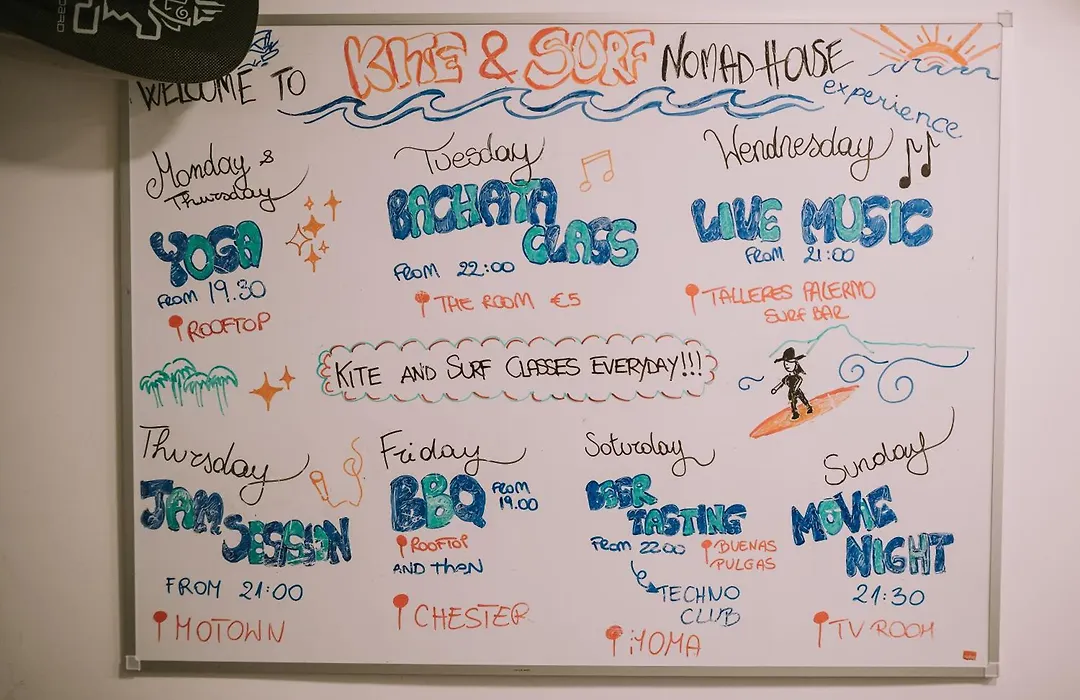 WELCOME TO KITE & SURF NOMAD HOUSE
experience
Monday &
Thursday
YOGA
FROM 19.30
ROOFTOP
Tuesday
BACHATA
CLASS
FROM 22:00
THE ROOM €5
Wendnesday
LIVE MUSIC
FROM 21:00
TALLERES PALERMO
SURF BAR
KITE AND SURF CLASSES EVERYDAY!!!
Thursday
JAM
SESSION
FROM 21:00
MOTOWN
Friday
BBQ FROM
19.00
ROOFTOP
AND THEN
CHESTER
Saturday
BEER
TASTING
FROM 22.00
BUENAS
PULGAS
TECHNO
CLUB
Sunday
MOVIE
NIGHT
21:30
TV ROOM